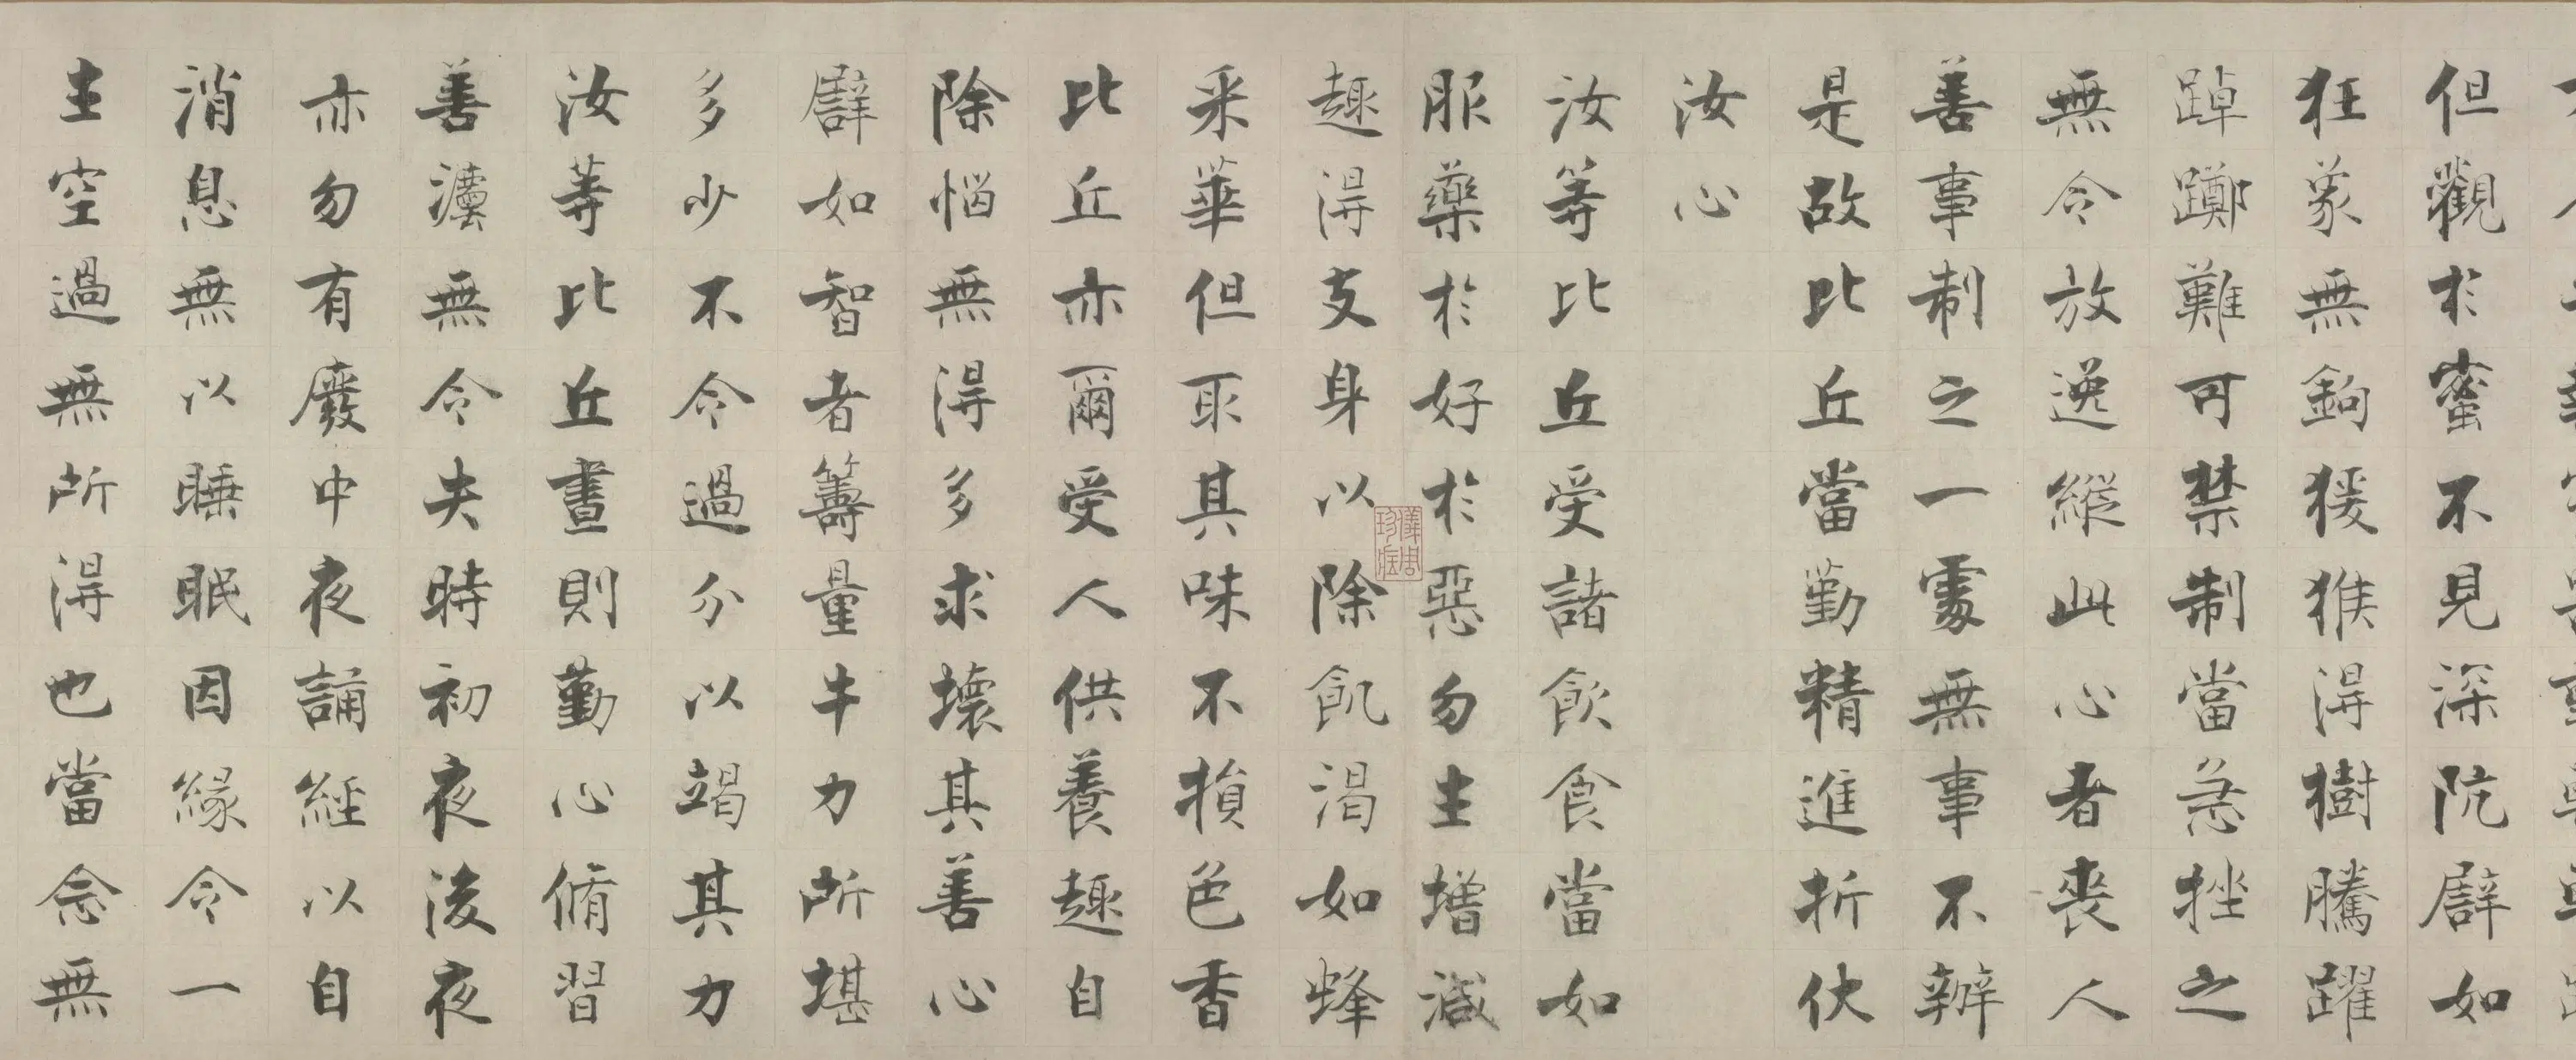 但觀於蜜不見深阬譬如
狂象無鉤猨猴得樹騰躍
踔躑難可禁制當急挫之
無令放逸縱此心者喪人
善事制之一處無事不辦
是故比丘當勤精進折伏
汝心
汝等比丘受諸飲食當如
服藥於好於惡勿生增減
趣得支身以除飢渴如蜂
采華但取其味不損色香
比丘亦爾受人供養趣自
除惱無得多求壞其善心
譬如智者籌量牛力所堪
多少不令過分以竭其力
汝等比丘晝則勤心脩習
善法無令失時初夜後夜
亦勿有廢中夜誦經以自
消息無以睡眠因緣令一
生空過無所得也當念無